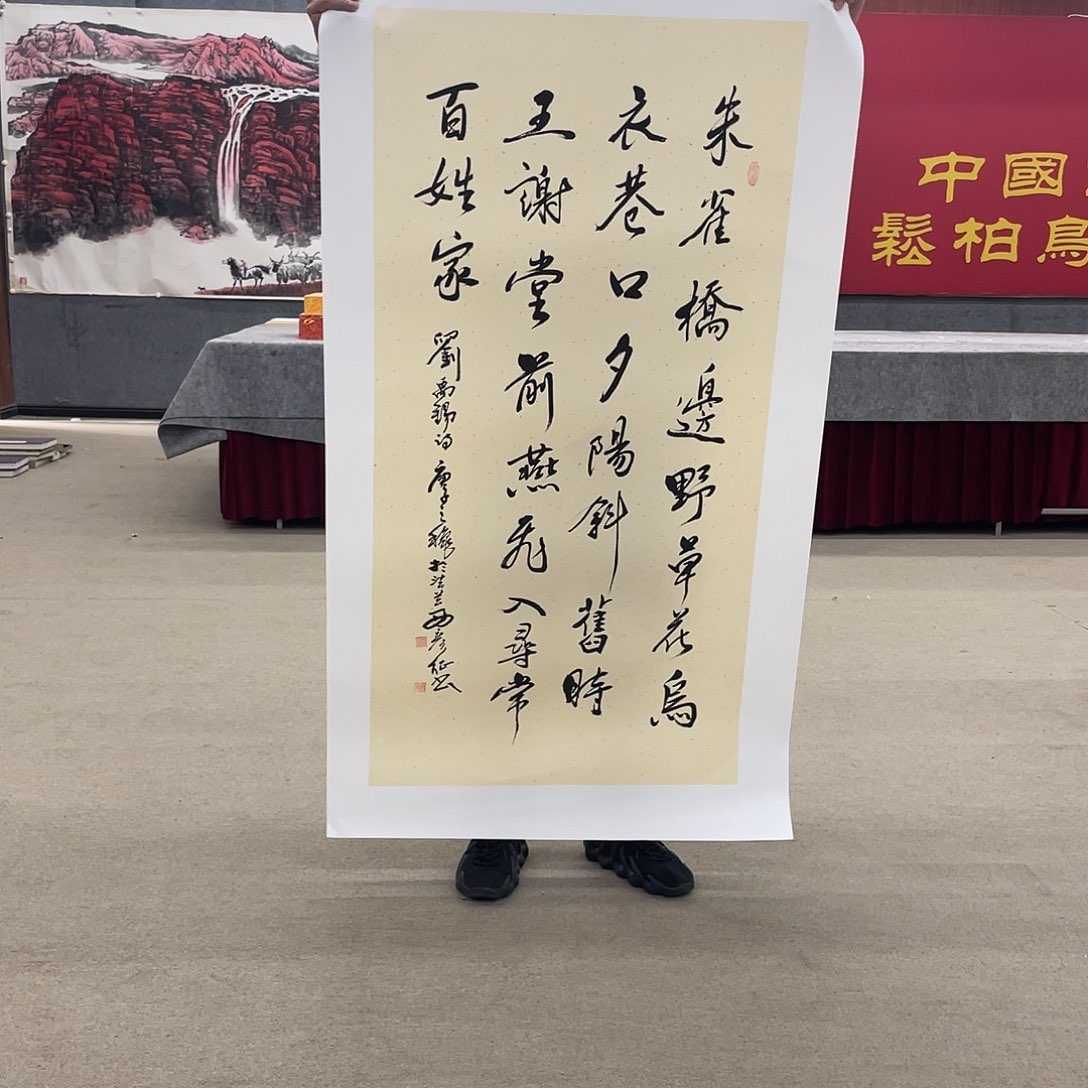 朱雀橋邊野草花烏
衣巷口夕陽斜舊時
王謝堂前燕飛入尋常
百姓家
劉禹錫詩 於法蘭西彥征书
中國
鬆柏鳥